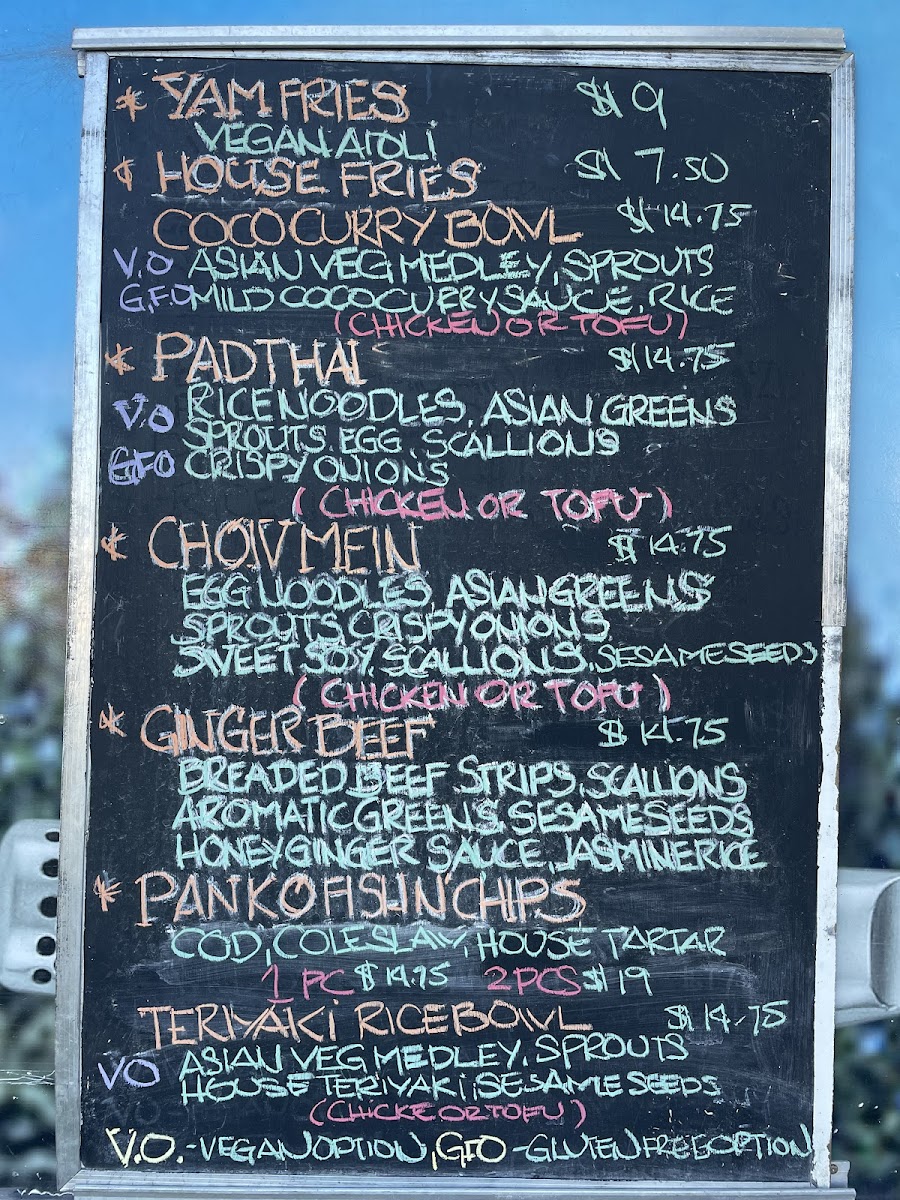 * YAM FRIES $ 9
VEGAN AIOLI
* HOUSE FRIES $ 7.50
COCO CURRY BOWL $ 14.75
V.O ASIAN VEG MEDLEY, SPROUTS
G.F.O MILD COCO CURRY SAUCE, RICE
(CHICKEN OR TOFU)
* PAD THAI $ 14.75
V.O RICE NOODLES, ASIAN GREENS
SPROUTS, EGG, SCALLIONS
GFO CRISPY ONIONS
(CHICKEN OR TOFU)
* CHOW MEIN $ 14.75
EGG NOODLES, ASIAN GREENS
SPROUTS, CRISPY ONIONS
SWEET SOY, SCALLIONS, SESAME SEEDS
(CHICKEN OR TOFU)
* GINGER BEEF $ 14.75
BREADED BEEF STRIPS, SCALLIONS
AROMATIC GREENS, SESAME SEEDS
HONEY GINGER SAUCE, JASMINE RICE
* PANKO FISH N' CHIPS
COD, COLESLAW, HOUSE TARTAR
1 PC $ 14.75 2 PCS $ 19
TERIYAKI RICE BOWL $ 14.75
VO ASIAN VEG MEDLEY, SPROUTS
HOUSE TERIYAKI, SESAME SEEDS
(CHICKE OR TOFU)
V.O. - VEGAN OPTION, GFO - GLUTEN FREE OPTION